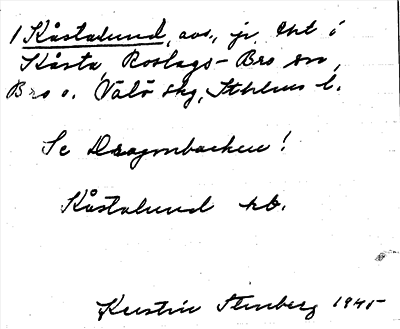 1 Kåstalund, avs., jr. Ekt i
Kåsta, Roslags-Bro sn,
Bro o. Vätö skg, Sthlms l.
Se Dragonbacken!
Kåstalund hb.
Kerstin Stenberg 1945